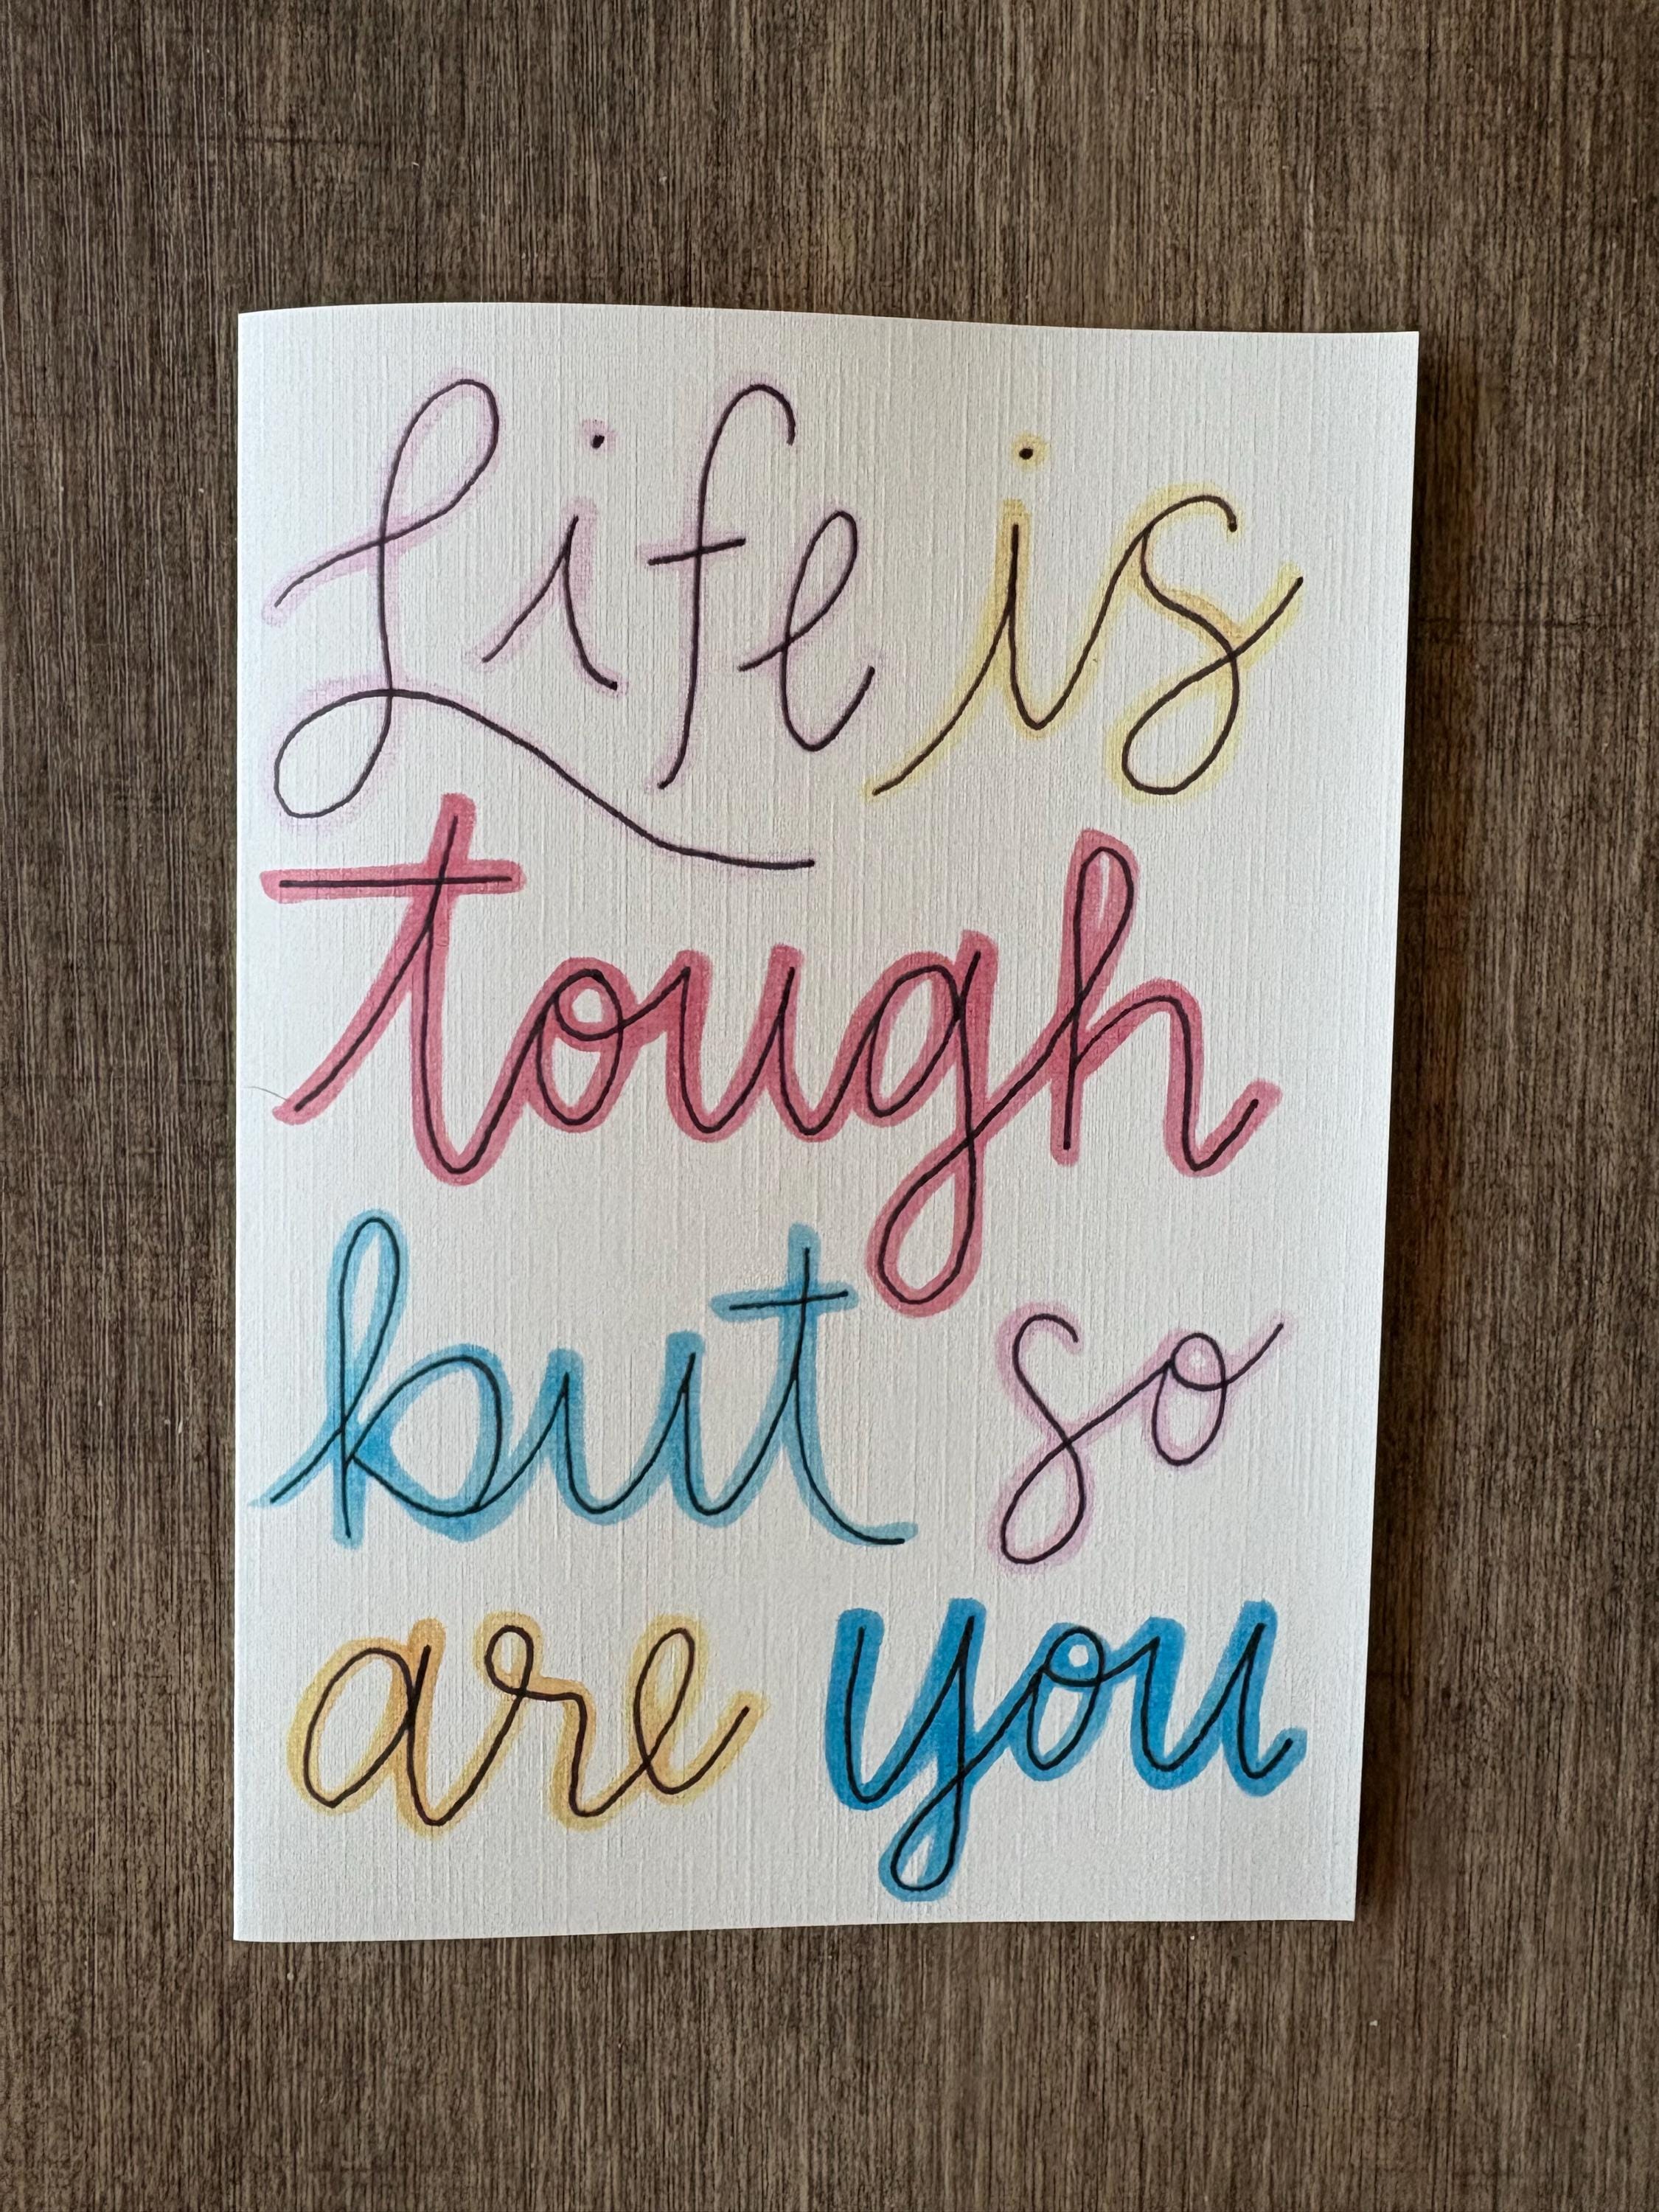 Life is
tough
but so
are you